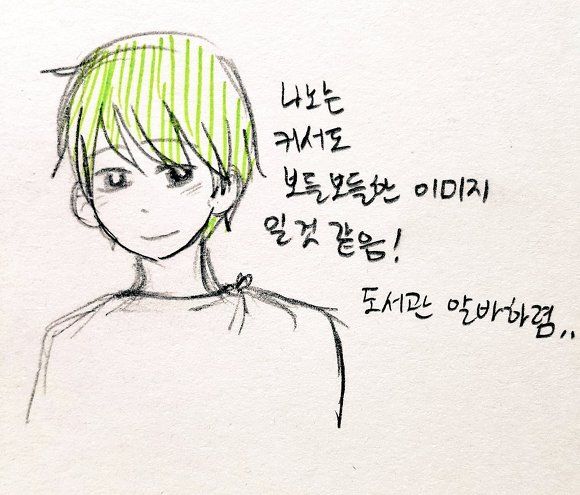 나노는
커서도
보들보들한 이미지
일것 같음!
도서관 알바하렴,,